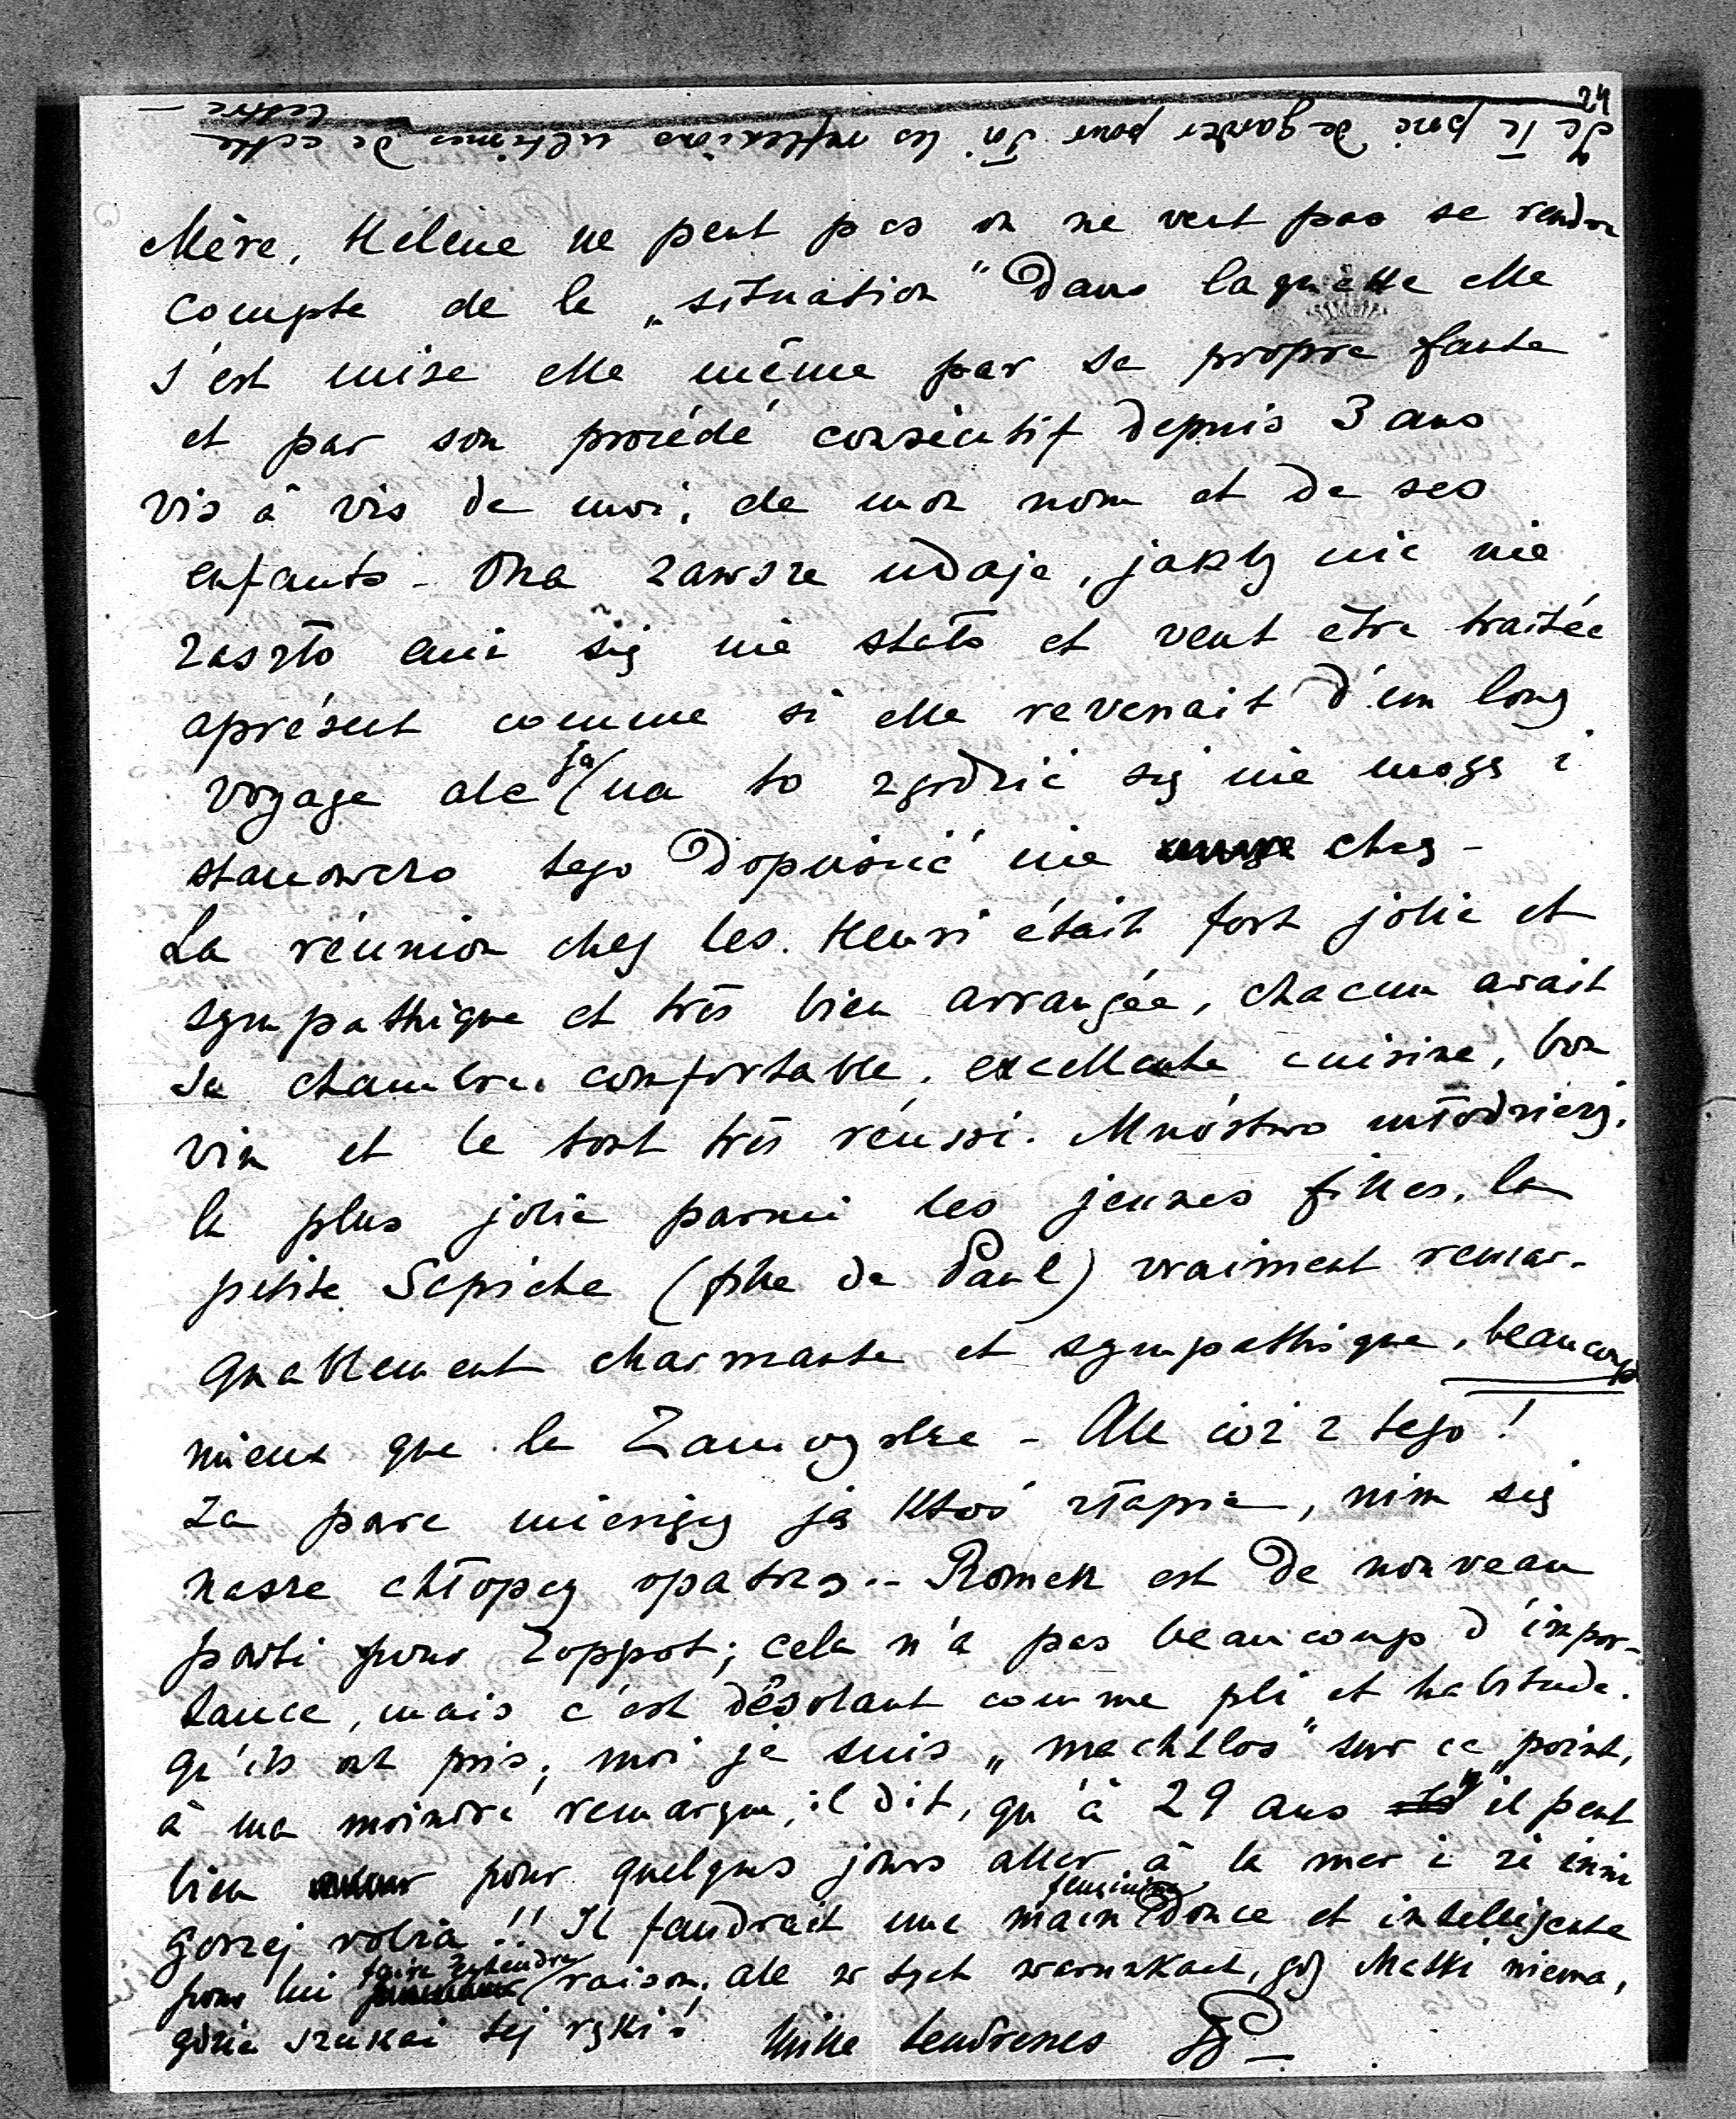 24
Je Te prie de garder pour Toi les réflexions ultérieures de cette
lettre —
Mère, Hélène ne peut pas ou ne veut pas se rendre
compte de la „situation" dans laquelle elle
s'est mise elle même par sa propre faute
et par son procédé consécutif depuis 3 ans
vis à vis de moi, de mon nom et de ses
enfants - Ona zawsze udaje, jakby nic nie
zaszło ani się nie stało et veut être traitée
aprésent comme si elle revenait d'un long
voyage ale ja na to zgodzić się nie mogę i
stanowczo tego dopuścić nie chcę -
La réunion chez les Henri était fort jolie et
sympathique et très bien arrangée, chacun avait
sa chambre confortable, excellente cuisine, bon
vin et le tout très réussi. Mnóstwo młodzieży.
la plus jolie parmi les jeunes filles, la
petite Sapieha (fille de Paul) vraiment remar-
quablement charmante et sympathique, beaucoup
mieux que la Zamoyska - Ale cóż z tego!
Za parę miesięcy ją ktoś złapie, nim się
nasze chłopcy opatrzą.- Romek est de nouveau
parti pour Zoppot; cela n'a pas beaucoup d'impor-
tance, mais c'est désolant comme pli et habitude
qu'ils ont pris, moi je suis „machtlos" sur ce point,
à ma moindre remarque, il dit, qu'à 29 ans il peut
bien pour quelques jours aller à la mer i że inni
gorzej robią!! Il faudrait une main féminine douce et intelligente
pour lui faire entendre raison, ale w tych warunkach, gdy Matki niema,
gdzie szukać tej ręki!
Mille tendresses